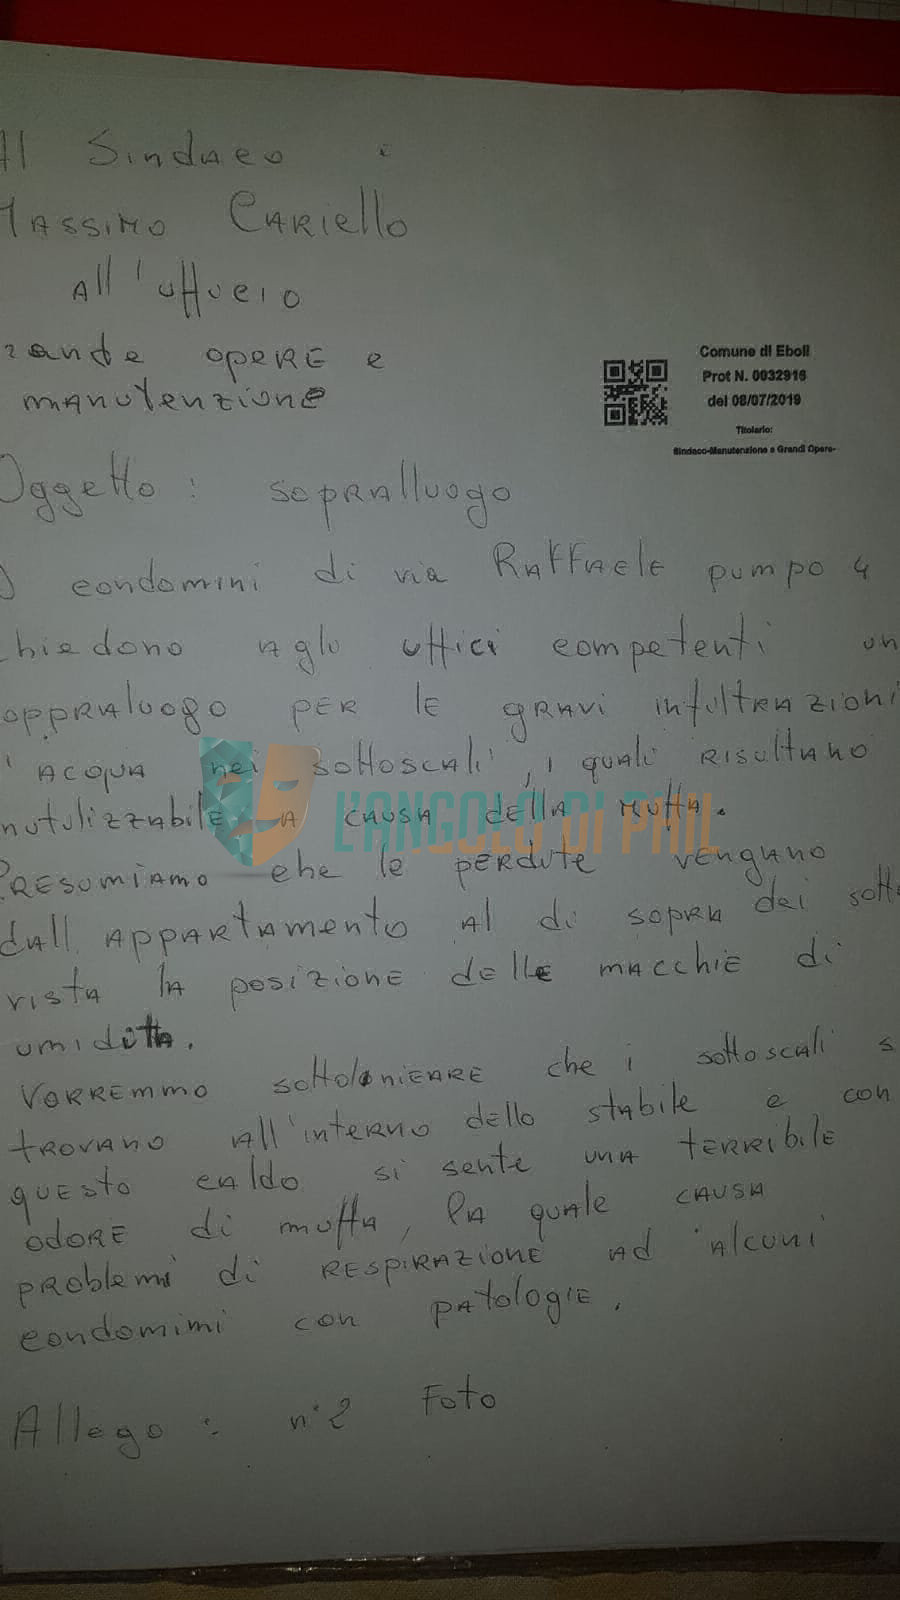 Al Sindaco
Massimo Cariello
All'uffucio
rande opere e
manutenzione
Comune di Eboli
Prot N. 0032916
del 08/07/2019
Titolario:
Sindaco-Manutenzione e Grandi Opere-
Oggetto : soprallluogo
I condomini di via Raffaele pumpo 4
chiedono aglu uffici competenti un
oppraluogo per le gravi infultrazioni
d'acqua nei sottoscali, i quali risultano
nutulizzabile a causa della muffa.
L'ANGOLO DI PHIL
Presumiamo che le perdute vengano
dall appartamento al di sopra dei sott
vista la posizione delle macchie di
umidità.
Vorremmo sottolonieare che i sottoscali s
trovano all'interno dello stabile e con
questo caldo si sente una terribile
odore di muffa, la quale causa
problemi di respirazione ad alcuni
condomimi con patologie.
Allego : n°2 Foto